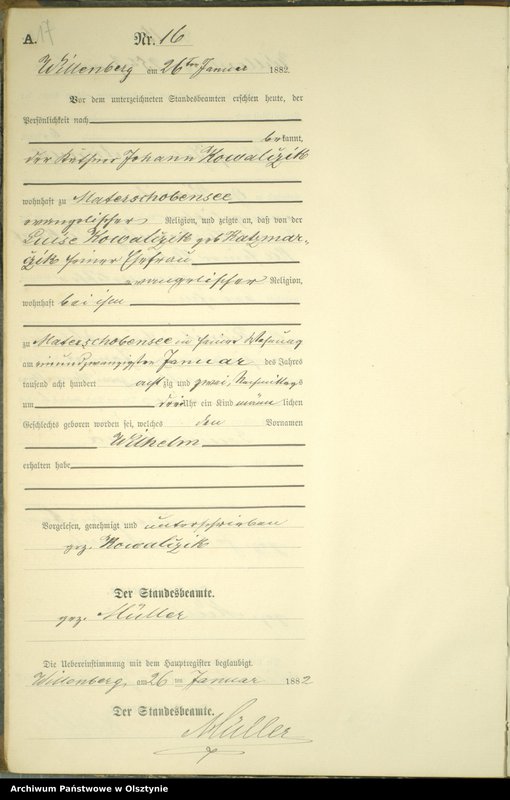 A. 17
Nr. 16
Wittenberg am 26ten Januar 1882.
Vor dem unterzeichneten Standesbeamten erschien heute, der
Persönlichkeit nach
bekannt,
der Käthner Johann Kowalizik
wohnhaft zu Materschobensee
evangelischer Religion, und zeigte an, daß von der
Luise Kowalizik geb Katzmar-
czik seiner Ehefrau
evangelischer Religion,
wohnhaft bei ihm
zu Materschobensee in seiner Wohnung
am einundzwanzigsten Januar des Jahres
tausend acht hundert acht zig und zwei, Nachmittags
um drei Uhr ein Kind männ lichen
Geschlechts geboren worden sei, welches den Vornamen
Wilhelm
erhalten habe
Vorgelesen, genehmigt und unterschrieben
gez. Kowalizik
Der Standesbeamte.
gez. Müller
Die Uebereinstimmung mit dem Hauptregister beglaubigt.
Wittenberg, am 26 ten Januar 1882
Der Standesbeamte.
Müller
Archiwum Państwowe w Olsztynie